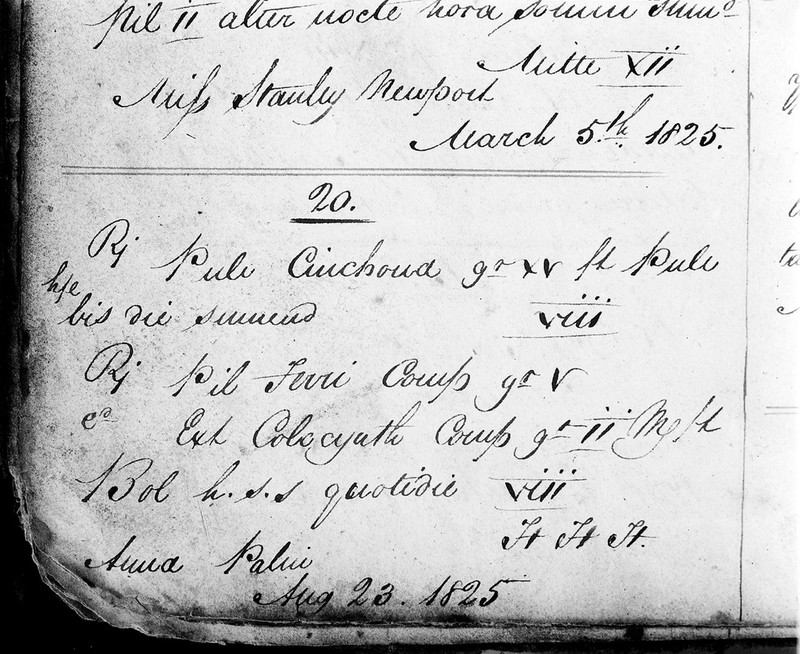 pil ii alter nocte hora somni sum
Mitte xii
Miss Stanley Newport
March 5th. 1825.
20.
Rj Pulv Cinchona gr xv ft Pulv
bis die sumend viii
Rj Pil Ferri Comp gr V
Ext Colocynth Comp gr ii M ft
Bol h.s.s quotidie viii
Ft Ft Ft.
Anna Palm
Aug 23. 1825